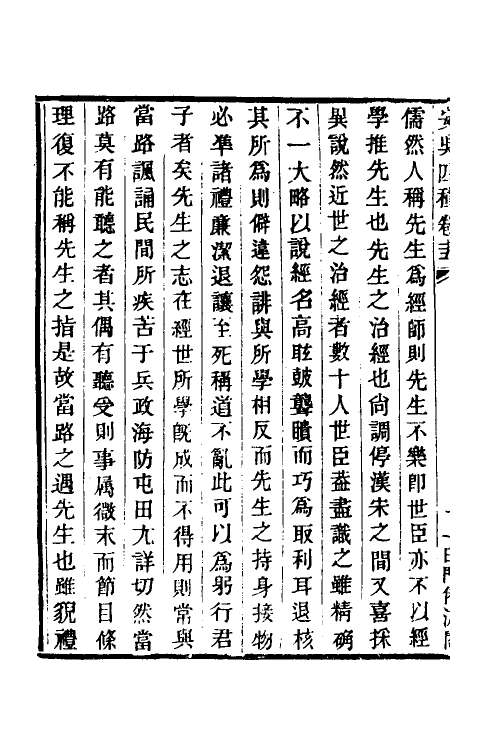 安吳四種卷
儒然人稱先生爲經師則先生不樂卽世臣亦不以經
學推先生也先生之治經也尙調停漢宋之間又喜採
異說然近世之治經者數十人世臣葢盡識之雖精碻
不一大略以說經名高眩皷聾瞶而巧爲取利耳退核
其所爲則僻違怨誹與所學相反而先生之持身接物
必準諸禮廉潔退讓至死稱道不亂此可以爲躬行君
子者矣先生之志在經世所學旣成而不得用則常與
當路諷誦民間所疾苦于兵政海防屯田尤詳切然當
路莫有能聽之者其偶有聽受則事属微末而節目條
理復不能稱先生之指是故當路之遇先生也雖貌禮